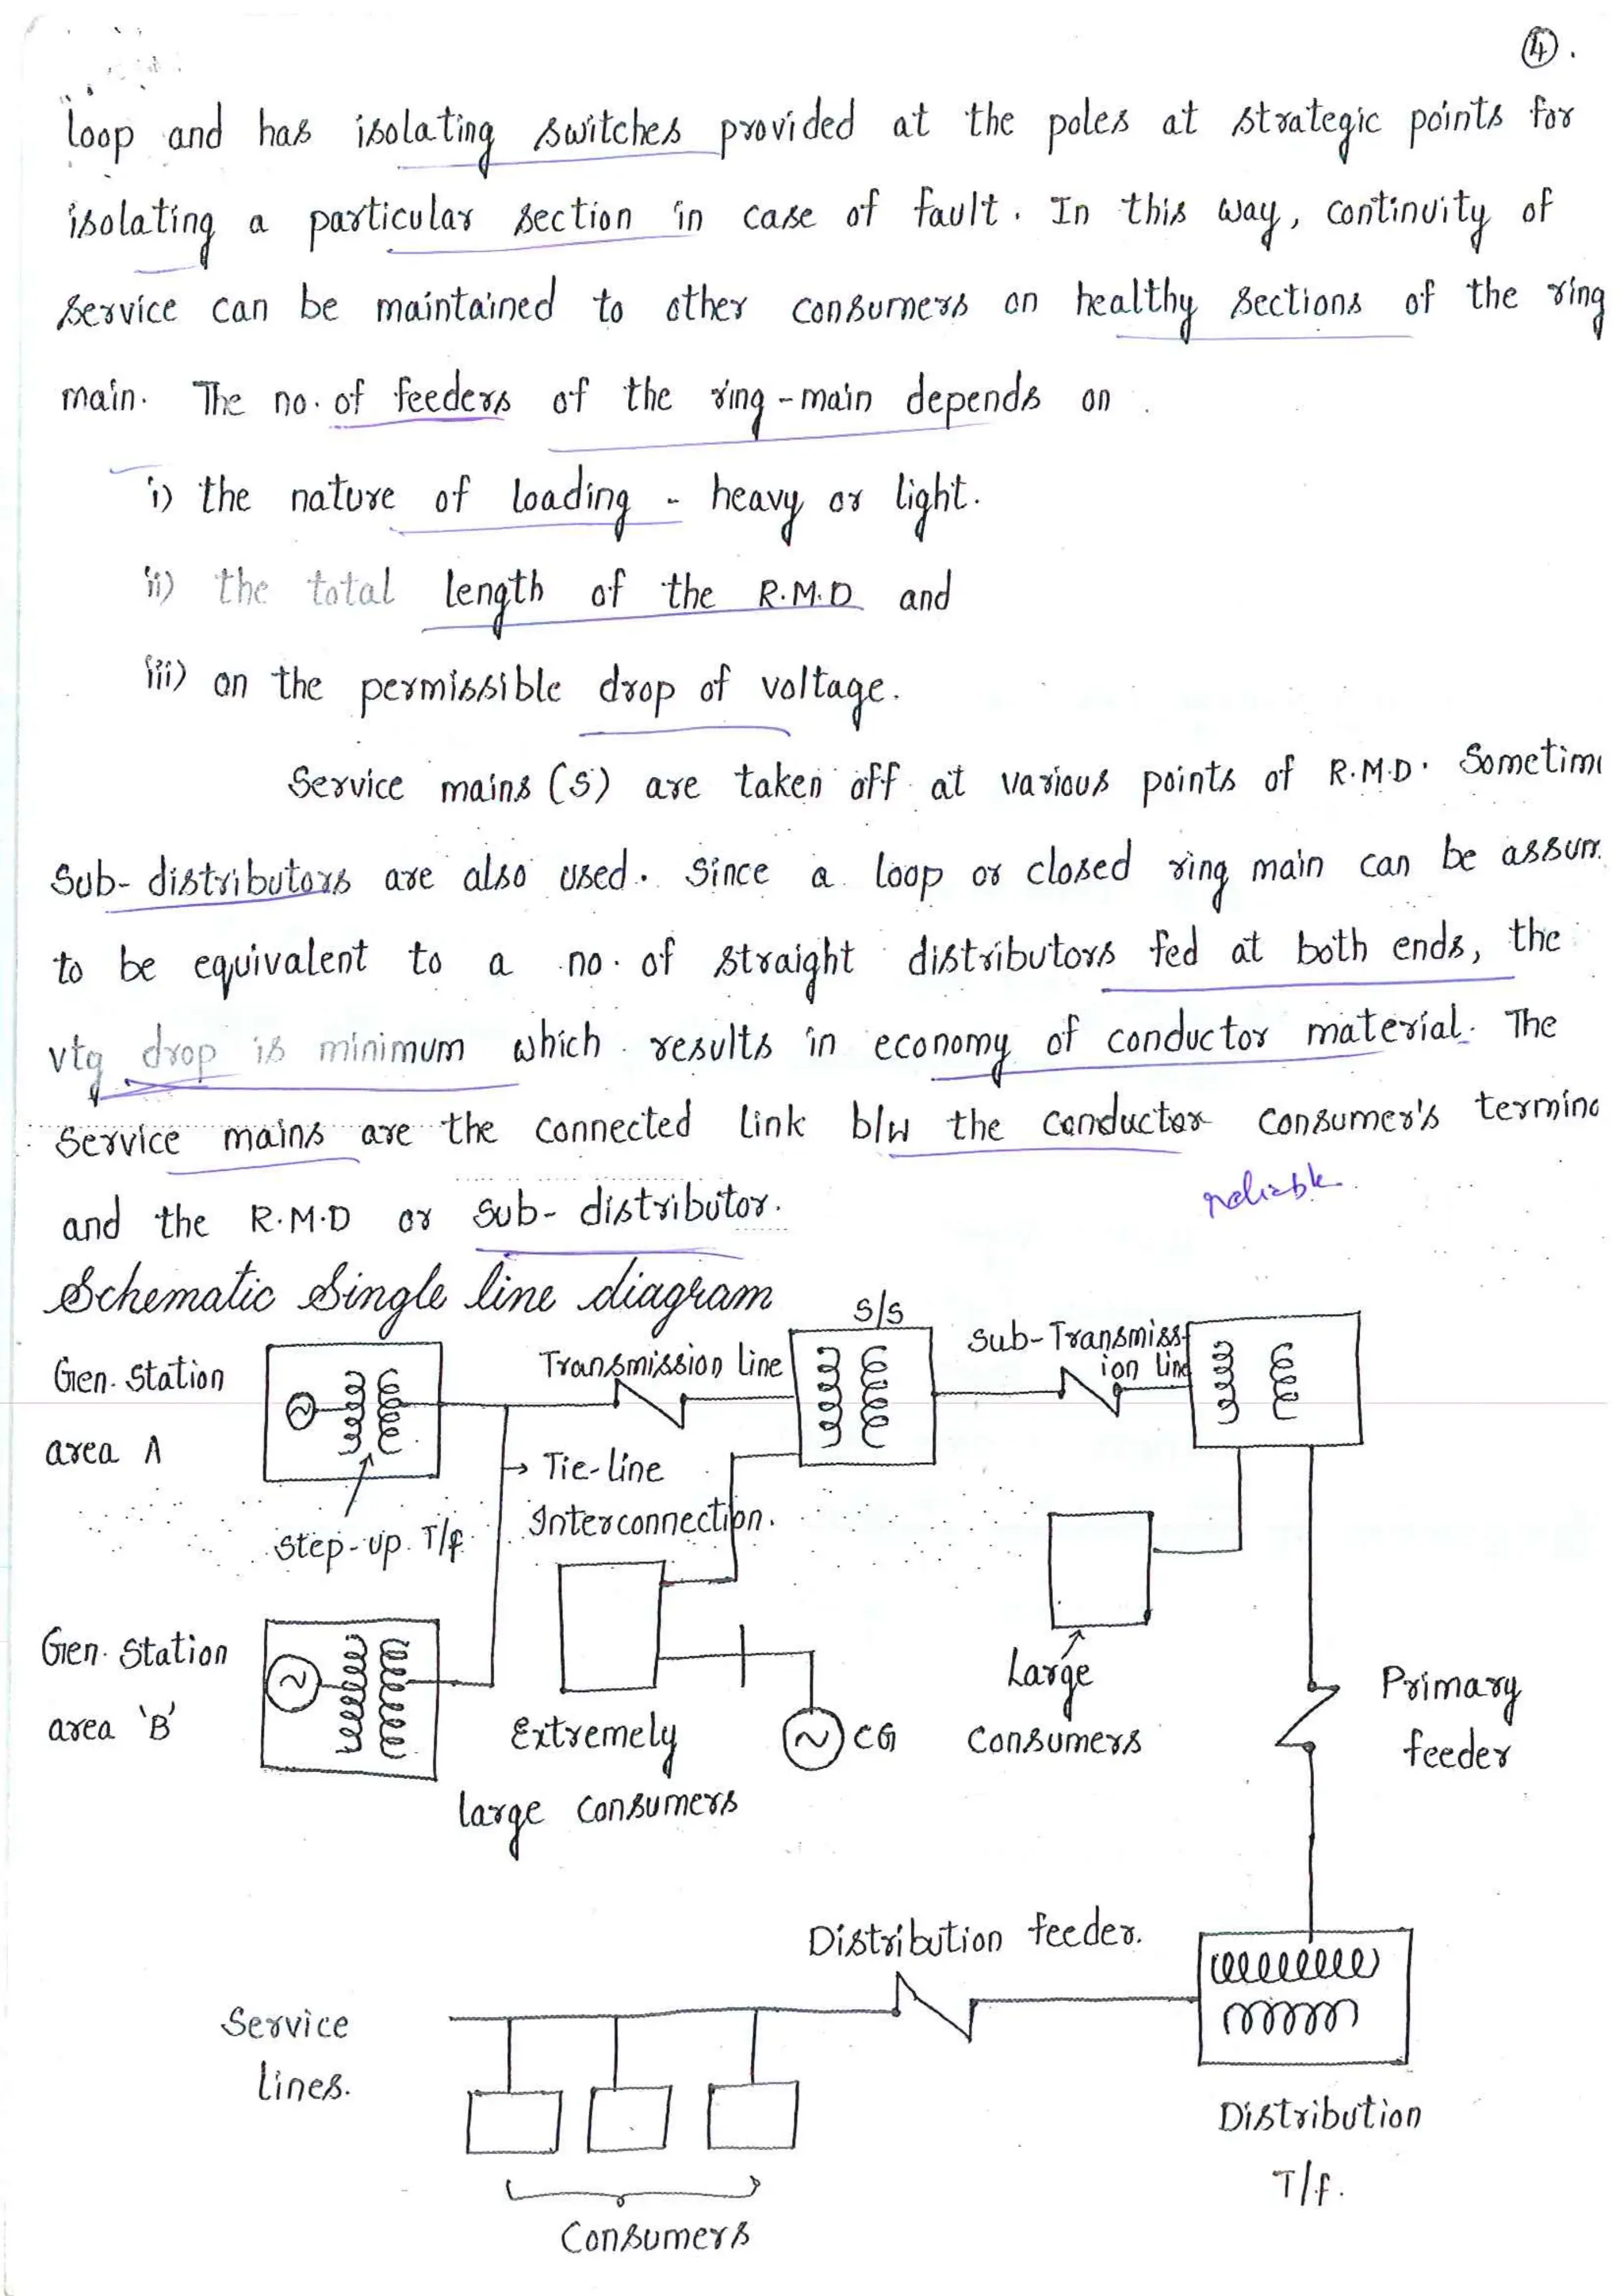 4.
loop and has isolating switches provided at the poles at strategic points for
isolating a particular section in case of fault. In this way, continuity of
service can be maintained to other consumers on healthy sections of the ring
main. The no. of feeders of the ring-main depends on
i) the nature of loading - heavy or light.
ii) the total length of the R.M.D and
iii) on the permissible drop of voltage.
Service mains (S) are taken off at various points of R.M.D. Sometim
Sub-distributors are also used. Since a loop or closed ring main can be assum
to be equivalent to a no. of straight distributors fed at both ends, the
vtg drop is minimum which results in economy of conductor material. The
service mains are the connected link b/w the conductor consumer's termina
and the R.M.D or sub-distributor.
reliable
Schematic Single line diagram
S/S
Gen. Station
area A
Transmission line
Sub-Transmiss-
ion line
Tie-line
Interconnection.
Step-up T/f
Gen. Station
area 'B'
Extremely
large consumers
CG
Large
Consumers
Primary
feeder
Distribution feeder.
Service
lines.
Distribution
T/f.
Consumers